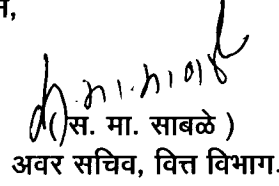 (स. मा. साबळे )
अवर सचिव, वित्त विभाग.